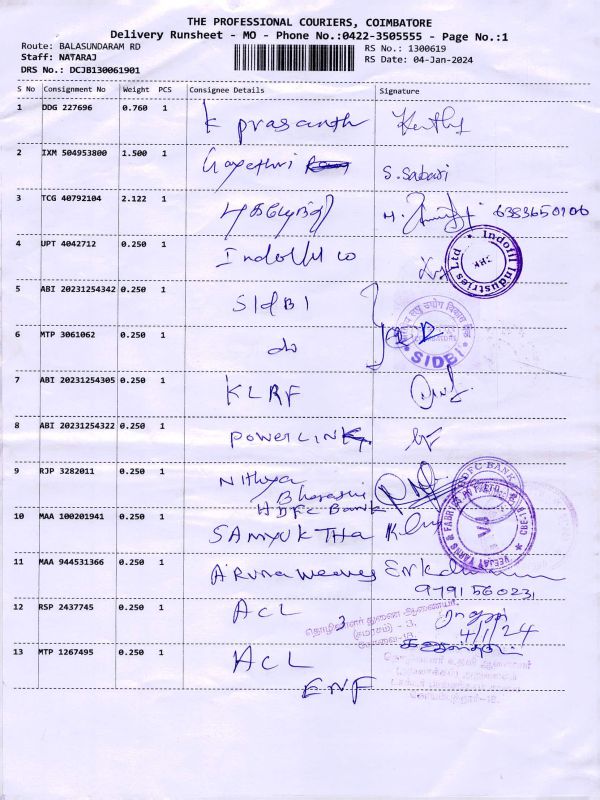 THE PROFESSIONAL COURIERS, COIMBATORE
Delivery Runsheet - MO - Phone No.:0422-3505555 - Page No.:1
Route: BALASUNDARAM RD
RS No.: 1300619
Staff: NATARAJ
RS Date: 04-Jan-2024
DRS No.: DCJB130061901
S No Consignment No Weight PCS Consignee Details Signature
1 DDG 227696 0.760 1 K prasanth
2 IXM 504953800 1.500 1 Gayethri S. Sabari
3 TCG 40792104 2.122 1 6383650106
4 UPT 4042712 0.250 1 Indofil co
Indofil Industries Ltd
5 ABI 20231254342 0.250 1 SIdBI
SIDBI
6 MTP 3061062 0.250 1 do
7 ABI 20231254305 0.250 1 KLRF
8 ABI 20231254322 0.250 1 POWERLINK
9 RJP 3282011 0.250 1 Nithya
Bharani
HDFC Bank
HDFC BANK
10 MAA 100201941 0.250 1 SAMYUKTHA
VEEJAY YARNS & FABRI
CBE-18
11 MAA 944531366 0.250 1 ARUNA weaves
9791560231
12 RSP 2437745 0.250 1 ACL 3
தொழிலாளர் துணை ஆணையர்
(சமரசம்) - 3,
கோவை-18.
4/1/24
13 MTP 1267495 0.250 1 ACL
ENF